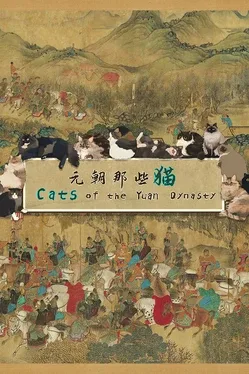 元朝那些猫
Cats of the Yuan Dynasty